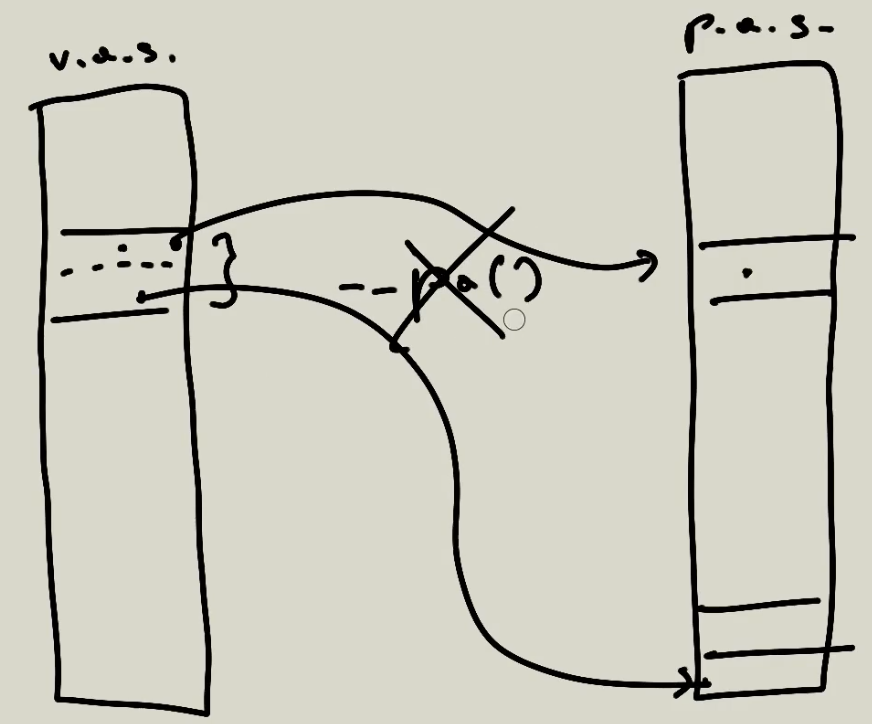 v.a.s.
p.a.s.
--pa()